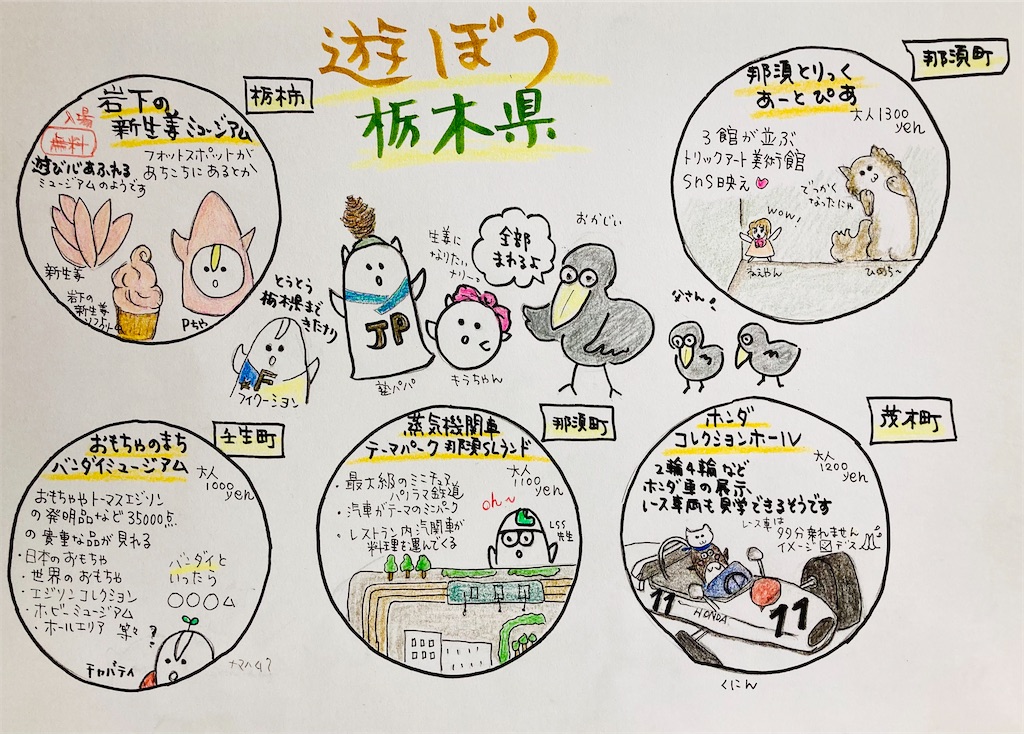 遊ぼう
栃木県
栃木市
岩下の
新生姜ミュージアム
入場
無料
フォットスポットが
あちこちにあるとか
遊び心あふれる
ミュージアムのようです
新生姜
岩下の
新生姜
ソフトクリーム
Pちゃ
とうとう
栃木県まで
きたナリ
F
フィクーション
JP
塾パパ
生姜に
なりたい
ナリー
もうちゃん
全部
まわるよ
おかじい
父さん!
那須町
那須とりっく
あーとぴあ
大人1300
yen
3館が並ぶ
トリックアート美術館
SNS映え
でっかく
なったにゃ
wow!
ねぇやん
ひめち〜
壬生町
おもちゃのまち
バンダイミュージアム
大人
1000
yen
おもちゃやトーマスエジソン
の発明品など35000点
の貴重な品が見れる
・日本のおもちゃ
・世界のおもちゃ
・エジソンコレクション
・ホビーミュージアム
・ホールエリア 等々
バンダイと
いったら
○○○ム
?
チャパティ
ナマハム?
那須町
蒸気機関車
テーマパーク那須SLランド
大人
1100
yen
・最大級のミニチュア
パノラマ鉄道
・汽車がテーマのミニパーク
・レストラン内汽関車が
料理を運んでくる
oh〜
LSS
先生
茂木町
ホンダ
コレクションホール
大人
1200
yen
2輪4輪など
ホンダ車の展示、
レース車両も見学できるそうです
レース車は
99分乗れません
イメージ図デス
11
HONDA
11
くにん